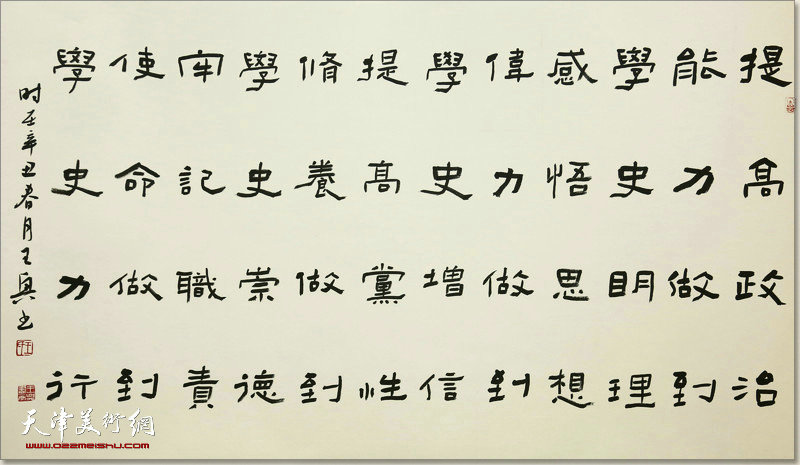 提高政治
能力做到
學史明理
感悟思想
偉力做到
學史增信
提高黨性
脩養做到
學史崇德
牢記職責
使命做到
學史力行
时在辛丑春月王興书
天津美術網
www.022meishu.com